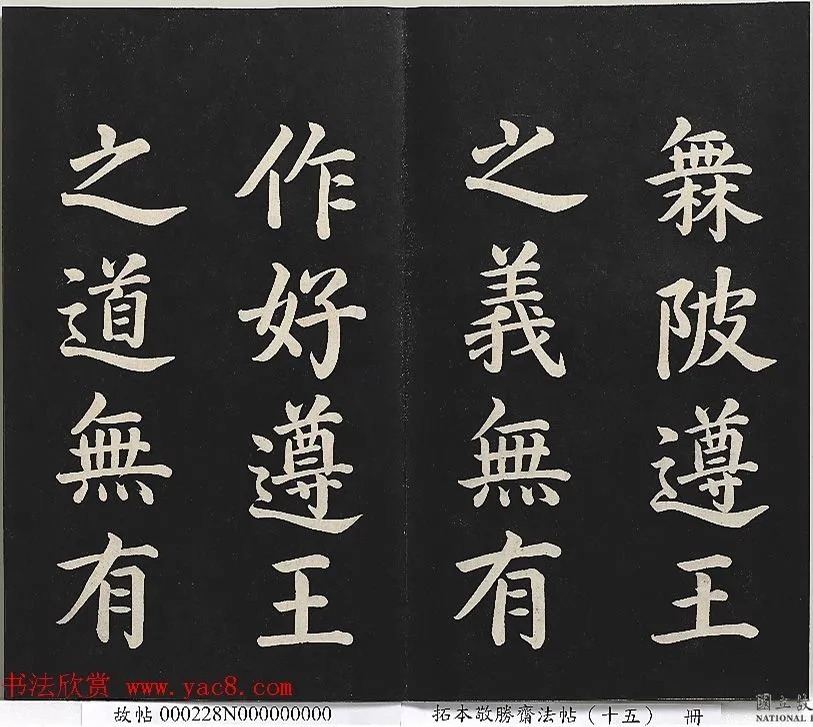 無陂遵王
之義無有
作好遵王
之道無有
书法欣赏 www.yac8.com
故帖 000228N000000000
拓本敬勝齋法帖（十五） 冊
國立故
NATIONAL